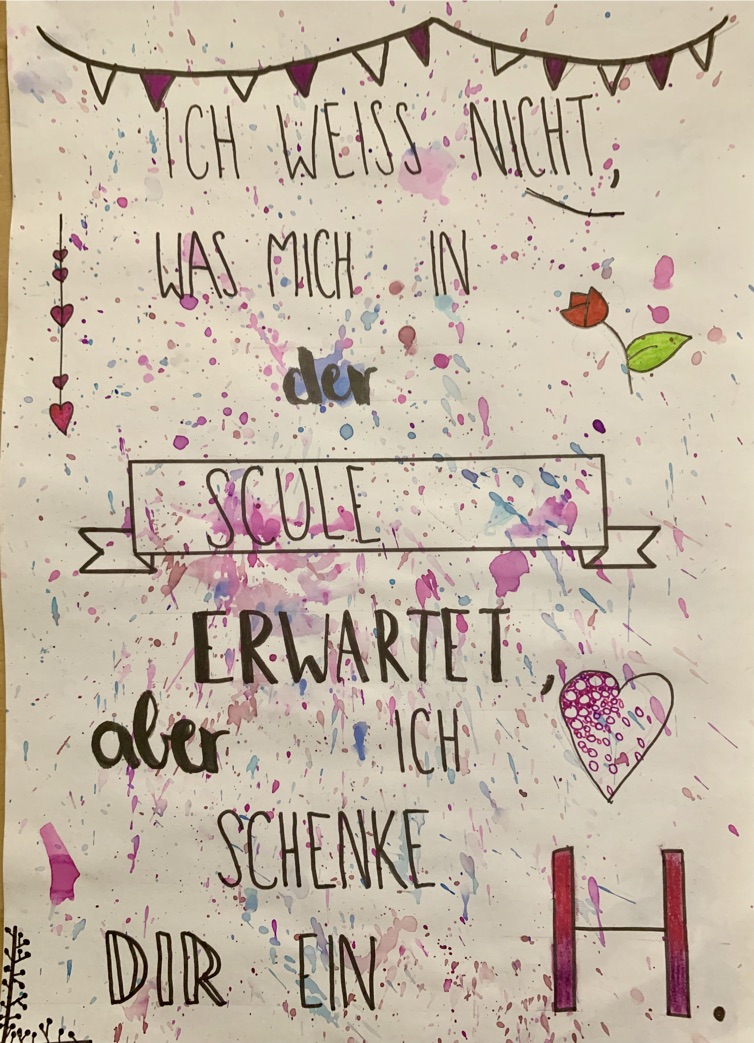 ICH WEISS NICHT,
WAS MICH IN
der
SCULE
ERWARTET,
aber ICH
SCHENKE
DIR EIN
H.